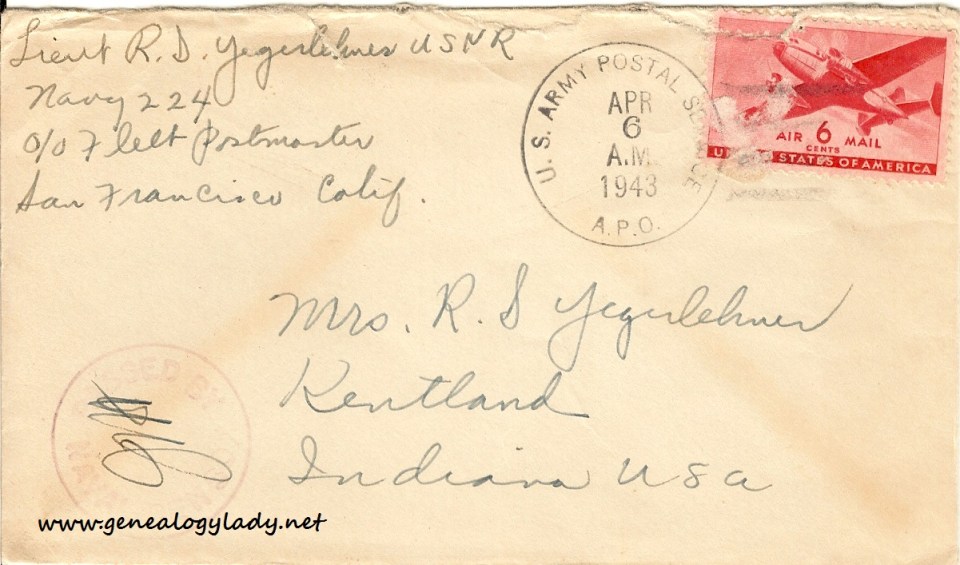 Lieut R. D. Yegerlehner USNR
Navy 224
c/o Fleet Postmaster
San Francisco Calif.
U. S. ARMY POSTAL SERVICE
APR
6
A.M.
1943
A.P.O.
AIR 6 MAIL
CENTS
UNITED STATES OF AMERICA
Mrs. R. D Yegerlehner
Kentland
Indiana USA
PASSED BY
NAVAL
www.genealogylady.net